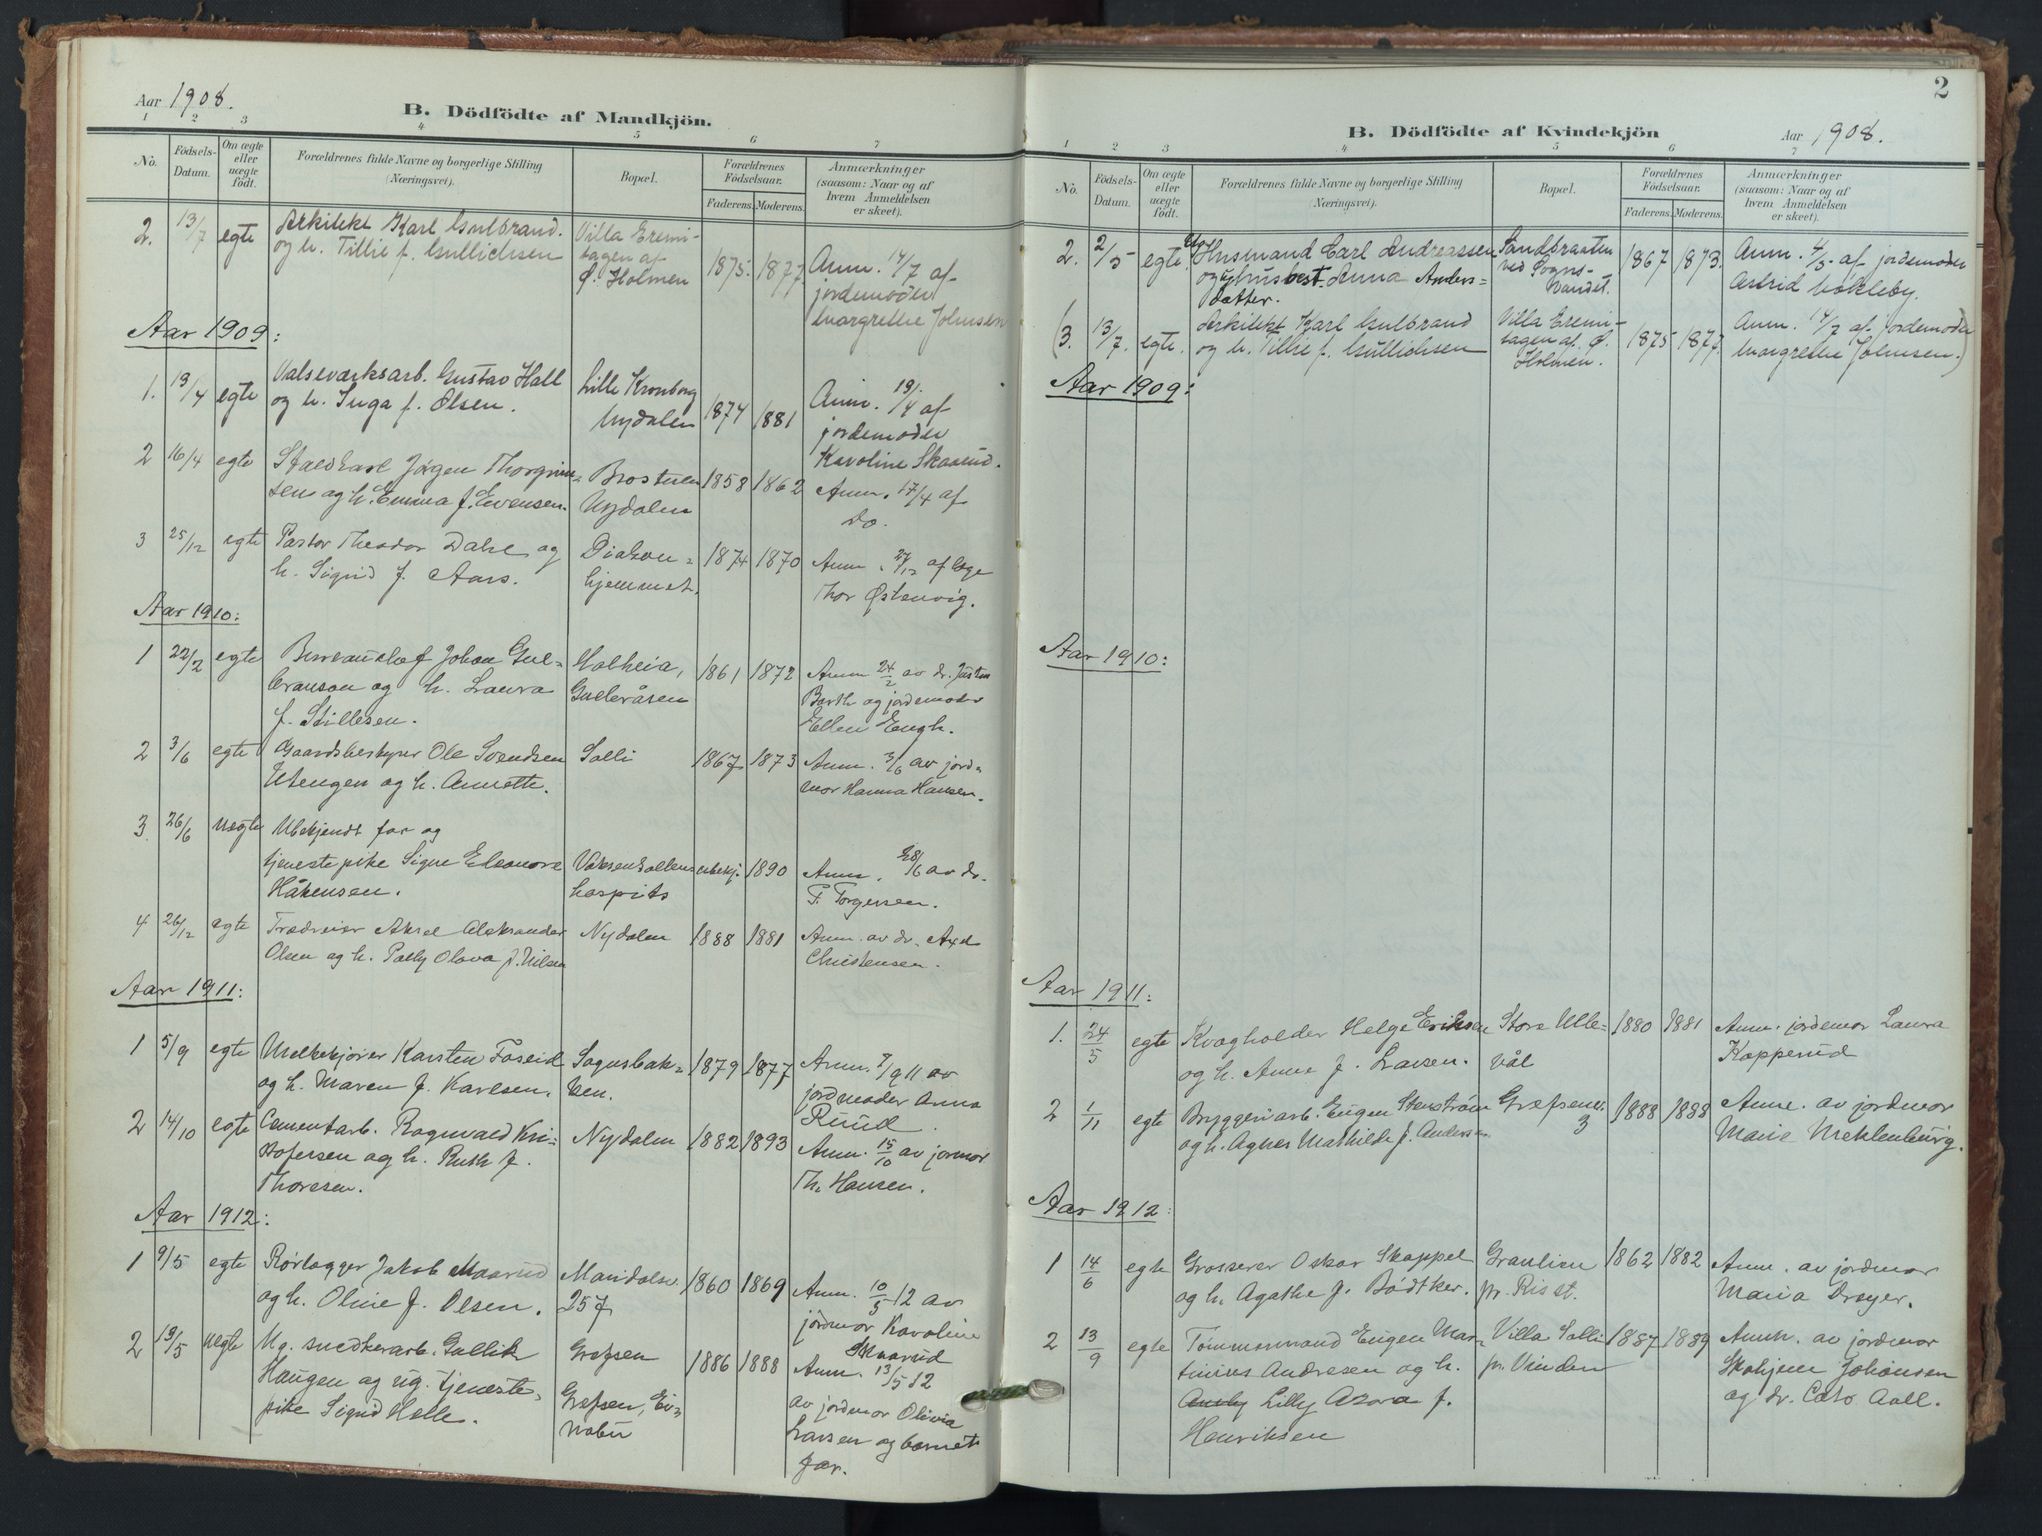 Aar 1908.
B. Dödfödte af Mandkjön.
1 2 3 4 5 6 7
No.
Födsels-
Datum.
Om ægte
eller
uægte
födt.
Forældrenes fulde Navne og borgerlige Stilling
(Næringsvei).
Bopæl.
Forældrenes
Födselsaar.
Faderens. Moderens.
Anmærkninger
(saasom: Naar og af
hvem Anmeldelsen
er skeet).
2. 13/7 egte Arkitekt Karl Gulbrand. Villa Eremi-
og h. Tillie f. Gullichsen tagen af
Ø. Holmen 1875. 1877 Anm. 14/7 af
jordemoder
Margrethe Johnsen
Aar 1909:
1. 13/4 egte Valseværksarb. Gustav Hall Lille Kronborg
og h. Inga f. Olsen. Nydalen 1874 1881 Anm. 19/4 af
jordemoder
Karoline Skaarud.
2 16/4 egte Staldkarl Jørgen Thorgrim- Brostuen 1858 1862 Anm. 17/4 af
sen og h. Emma f. Evensen. Nydalen Do.
3 25/12 egte Pastor Theodor Dahl og Diakon- 1874 1870 Anm. 27/12 af læge
h. Sigrid f. Aars. hjemmet. Thor Østenvig.
Aar 1910:
1 22/2 egte Bureauchef Johan Gul- Holheia, 1861 1872 Anm 24/2 av dr. Justin
branson og h. Laura Gulleråsen Barth og jordemoder
f. Stillesen. Ellen Engh.
2 3/6 egte Gaardsbestyrer Ole Svendsen Solli 1867 1873 Anm. 3/6 av jord-
Utengen og h. Annette. mor Hanna Hansen.
3 26/6 uegte Ubekjendt far og
tjenestepike Signe Eleonore Voksenkollens ubekj. 1890 Anm. 28/6 av dr.
Håkensen. hospits F. Torgersen.
4 26/12 egte Aksel Aleksander Nydalen 1888 1881 Anm. av dr. Axel
Olsen og h. Polly Olava f. Nilsen Christensen.
Aar 1911:
1 5/9 egte Melkekjører Karsten Foseid Sognsbak- 1879 1877 Anm. 7/9 11 av
og h. Maren f. Karlsen. ken. jordmoder Anna
Ruud.
2 14/10 egte Cementarb. Ragnvald Kri- Nydalen 1882 1893 Anm. 15/10 av jormor
stofersen og h. Ruth f. Th. Hansen.
Thoresen.
Aar 1912:
1 9/5 egte Rørlægger Jakob Maarud Maridalsv. 1860 1869 Anm. 10/5 12 av
og h. Oline f. Olsen. 257 jordmor Karoline
Skaarud
2 13/5 uegte Ug. snedkerarb. Gullik Grefsen 1886 1888 Anm. 13/5 12
Haugen og ug. tjeneste- Grefsen, Ei- av jordmor Olivia
pike Sigrid Helle. nabu Larsen og barnets
far.
2
B. Dödfödte af Kvindekjön
Aar 1908.
1 2 3 4 5 6 7
No.
Födsels-
Datum.
Om ægte
eller
uægte
födt.
Forældrenes fulde Navne og borgerlige Stilling
(Næringsvei).
Bopæl.
Forældrenes
Födselsaar.
Faderens. Moderens.
Anmærkninger
(saasom: Naar og af
hvem Anmeldelsen
er skeet).
2. 2/5 egte. Husmand Carl Andreassen Sandbraaten 1867 1873. Anm. 4/5 af jordemoder
og Anna Anders- ved Sogns- Astrid Løkleby.
datter. vandet.
(3. 13/7. egte. Arkitekt Karl Gulbrand Villa Eremi- 1875 1877. Anm. 14/7 af jordemoder
og h. Tillie f. Gullichsen tagen af Ø. Margrethe Johnsen.)
Holmen.
Aar 1909:
Aar 1910:
Aar 1911:
1. 24/5 egte Kvægholder Helge Eriksen Store Ulle- 1880 1881 Anm. jordemor Laura
og h. Anne f. Larsen. vål Kopperud
2 1/11 egte Bryggeriarb. Eugen Stenstrøm Grefsenv. 1888 1888 Anm. av jordmor
og h. Agnes Mathilde f. Andersen 3 Marie Meklenburg.
Aar 1912:
1 14/6 egte Grosserer Oskar Skappel Granlien 1862 1882 Anm. av jordmor
og h. Agathe f. Bødtker. pr. Risst. Maria Dreyer.
2 13/9 egte Tømmermand Eugen Mar- Villa Solli 1887 1889 Anm. av jordmor
tinius Andresen og h. pr. Vinderen Johansen
Lilly Azora f. og dr. Cato Aall.
Henriksen